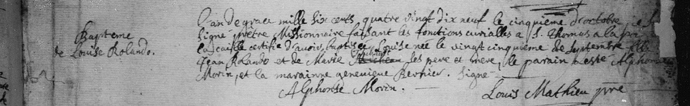 Bapteme
de Louise Rolando.
L'an de grace mille six cents quatre vingt dix neuf le cinquieme d'octobre
signé pretre Missionnaire faisant les fonctions curialles a S. Thomas a la
certifie d'avoir Batisé Louise née le vingt cinquieme de Septembre
Jean Rolando et de Marie ses pere et mere, le parain a esté Alphonse
Morin, et la marainne genevieve Signé
Alphonse Morin. Louis Mathieu ptre